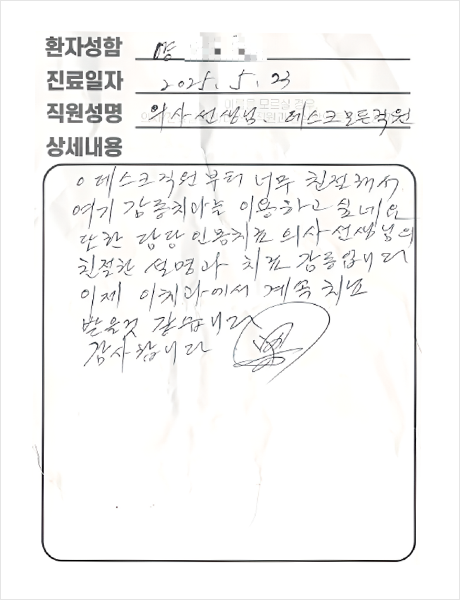 환자성함
진료일자 2025. 5. 23
직원성명 의사선생님 데스크모든직원
상세내용
데스크직원부터 너무 친절해서
여기 감동치아를 이용하고 싶네요
또한 담당 인용치료 의사선생님의
친절한 설명과 치료 감동입니다
이제 이치과에서 계속 치료
받을것 같습니다
감사합니다